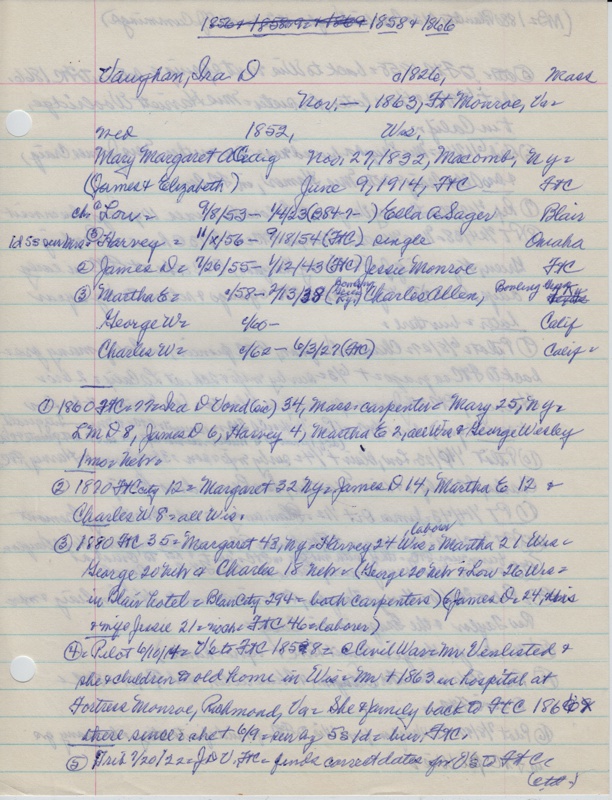 1858 & 1866
Vaughan, Ira D c/1826, Mass
Nov. —, 1863, Ft Monroe, Va=
med 1852, Wis.
Mary Margaret Nov. 27, 1832, Macomb, Ny=
(James & Elizabeth) June 9, 1914, FtC FtC
Low= 9/8/53— 1/4/23 Ella A Sager Blair
Harvey = 11/x/56 — 9/18/54 (FtC) single Omaha
James D= 7/26/55— 1/12/43 (FtC) Jessie Monroe FtC
③ Martha E= c/58— 2/13/38 (Bowling Green Ky=) Charles Allen, Bowling Green
George W= c/60— Calif
Charles W= c/62— 6/3/27 (FtC) Calif=
① 1860 FtC= Ira D 34, Mass= carpenter= Mary 25, Ny=
L M D 8, James D 6, Harvey 4, Martha E 2, all Wis & George Wesley
1 mo= Nebr=
② 1870 FtC city 12= Margaret 32 Ny= James D 14, Martha E 12 &
Charles W 8= all Wis.
③ 1880 FtC 35= Margaret 43, Ny= Harvey 24 Wis= laborer Martha 21 Wis=
George 20 Nebr & Charles 18 Nebr= (George 20 Nebr & Low 26 Wis=
in Blair hotel= Blair City 294= both carpenters) (James D= 24, Wis
& wife Jessie 21= FtC 46= laborer)
④= Pilot 6/10/14= V's to FtC 1858= Civil War= Mr V enlisted &
she & children to old home in Wis= Mr + 1863 in hospital at
Fortress Monroe, Richmond, Va= She & family back to FtC 1866
there since= 5 s 1 d= bur. FtC.
⑤ Trib 7/20/22= J D V, FtC= finds correct dates for V's to FtC
(etc=)